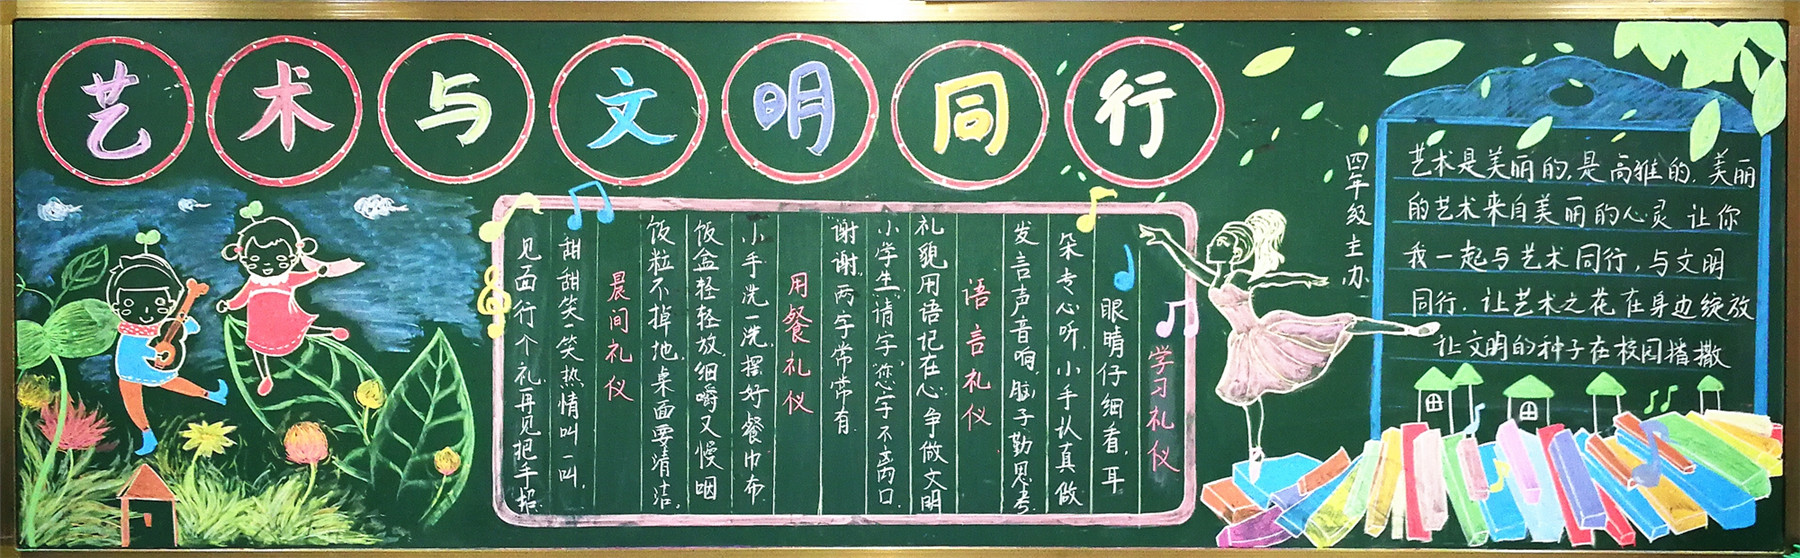 艺术与文明同行
学习礼仪
眼睛仔细看,耳
朵专心听,小手认真做
发言声音响,脑子勤思考
语言礼仪
礼貌用语记在心,争做文明
小学生,“请”字,“您”字不离口,
“谢谢”两字常常有
用餐礼仪
小手洗一洗,摆好餐巾布
饭盒轻轻放,细嚼又慢咽
饭粒不掉地,桌面要清洁。
晨间礼仪
甜甜笑一笑,热情叫一叫,
见面行个礼,再见把手招
四年级主办
艺术是美丽的,是高雅的,美丽
的艺术来自美丽的心灵 让你
我一起与艺术同行,与文明
同行,让艺术之花在身边绽放
让文明的种子在校园播撒